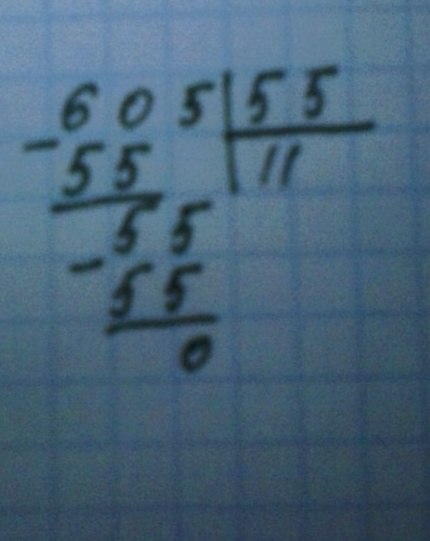 605 55
- 55 11
55
- 55
0